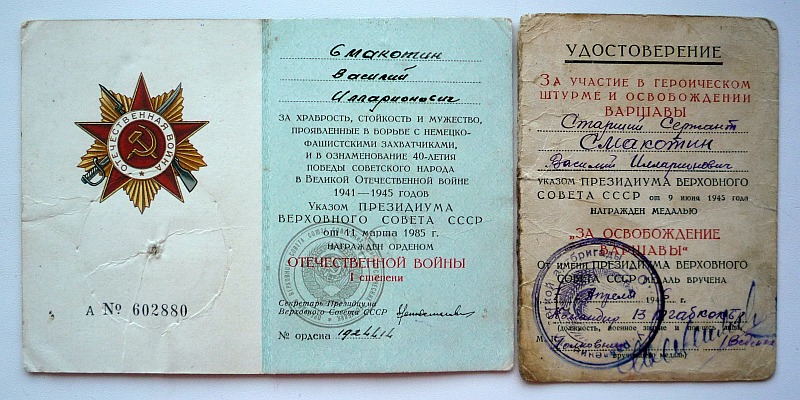 ОТЕЧЕСТВЕННАЯ ВОЙНА
А № 602880
Смакотин
Василий
Илларионович
ЗА ХРАБРОСТЬ, СТОЙКОСТЬ И МУЖЕСТВО,
ПРОЯВЛЕННЫЕ В БОРЬБЕ С НЕМЕЦКО-
ФАШИСТСКИМИ ЗАХВАТЧИКАМИ,
И В ОЗНАМЕНОВАНИЕ 40-ЛЕТИЯ
ПОБЕДЫ СОВЕТСКОГО НАРОДА
В ВЕЛИКОЙ ОТЕЧЕСТВЕННОЙ ВОЙНЕ
1941—1945 ГОДОВ
УКАЗОМ ПРЕЗИДИУМА
ВЕРХОВНОГО СОВЕТА СССР
от 11 марта 1985 г.
НАГРАЖДЕН ОРДЕНОМ
ОТЕЧЕСТВЕННОЙ ВОЙНЫ
I степени
Секретарь Президиума
Верховного Совета СССР
№ ордена 1924414
УДОСТОВЕРЕНИЕ
ЗА УЧАСТИЕ В ГЕРОИЧЕСКОМ
ШТУРМЕ И ОСВОБОЖДЕНИИ
ВАРШАВЫ
Старший Сержант
Смакотин
Василий Илларионович
УКАЗОМ ПРЕЗИДИУМА ВЕРХОВНОГО
СОВЕТА СССР от 9 июня 1945 года
НАГРАЖДЕН МЕДАЛЬЮ
„ЗА ОСВОБОЖДЕНИЕ
ВАРШАВЫ“
От имени ПРЕЗИДИУМА ВЕРХОВНОГО
СОВЕТА СССР МЕДАЛЬ ВРУЧЕНА
Апреля 194 г.
Командир 13
(должность, военное звание и подпись лица,
М. П. Полковник
вручившего медаль)